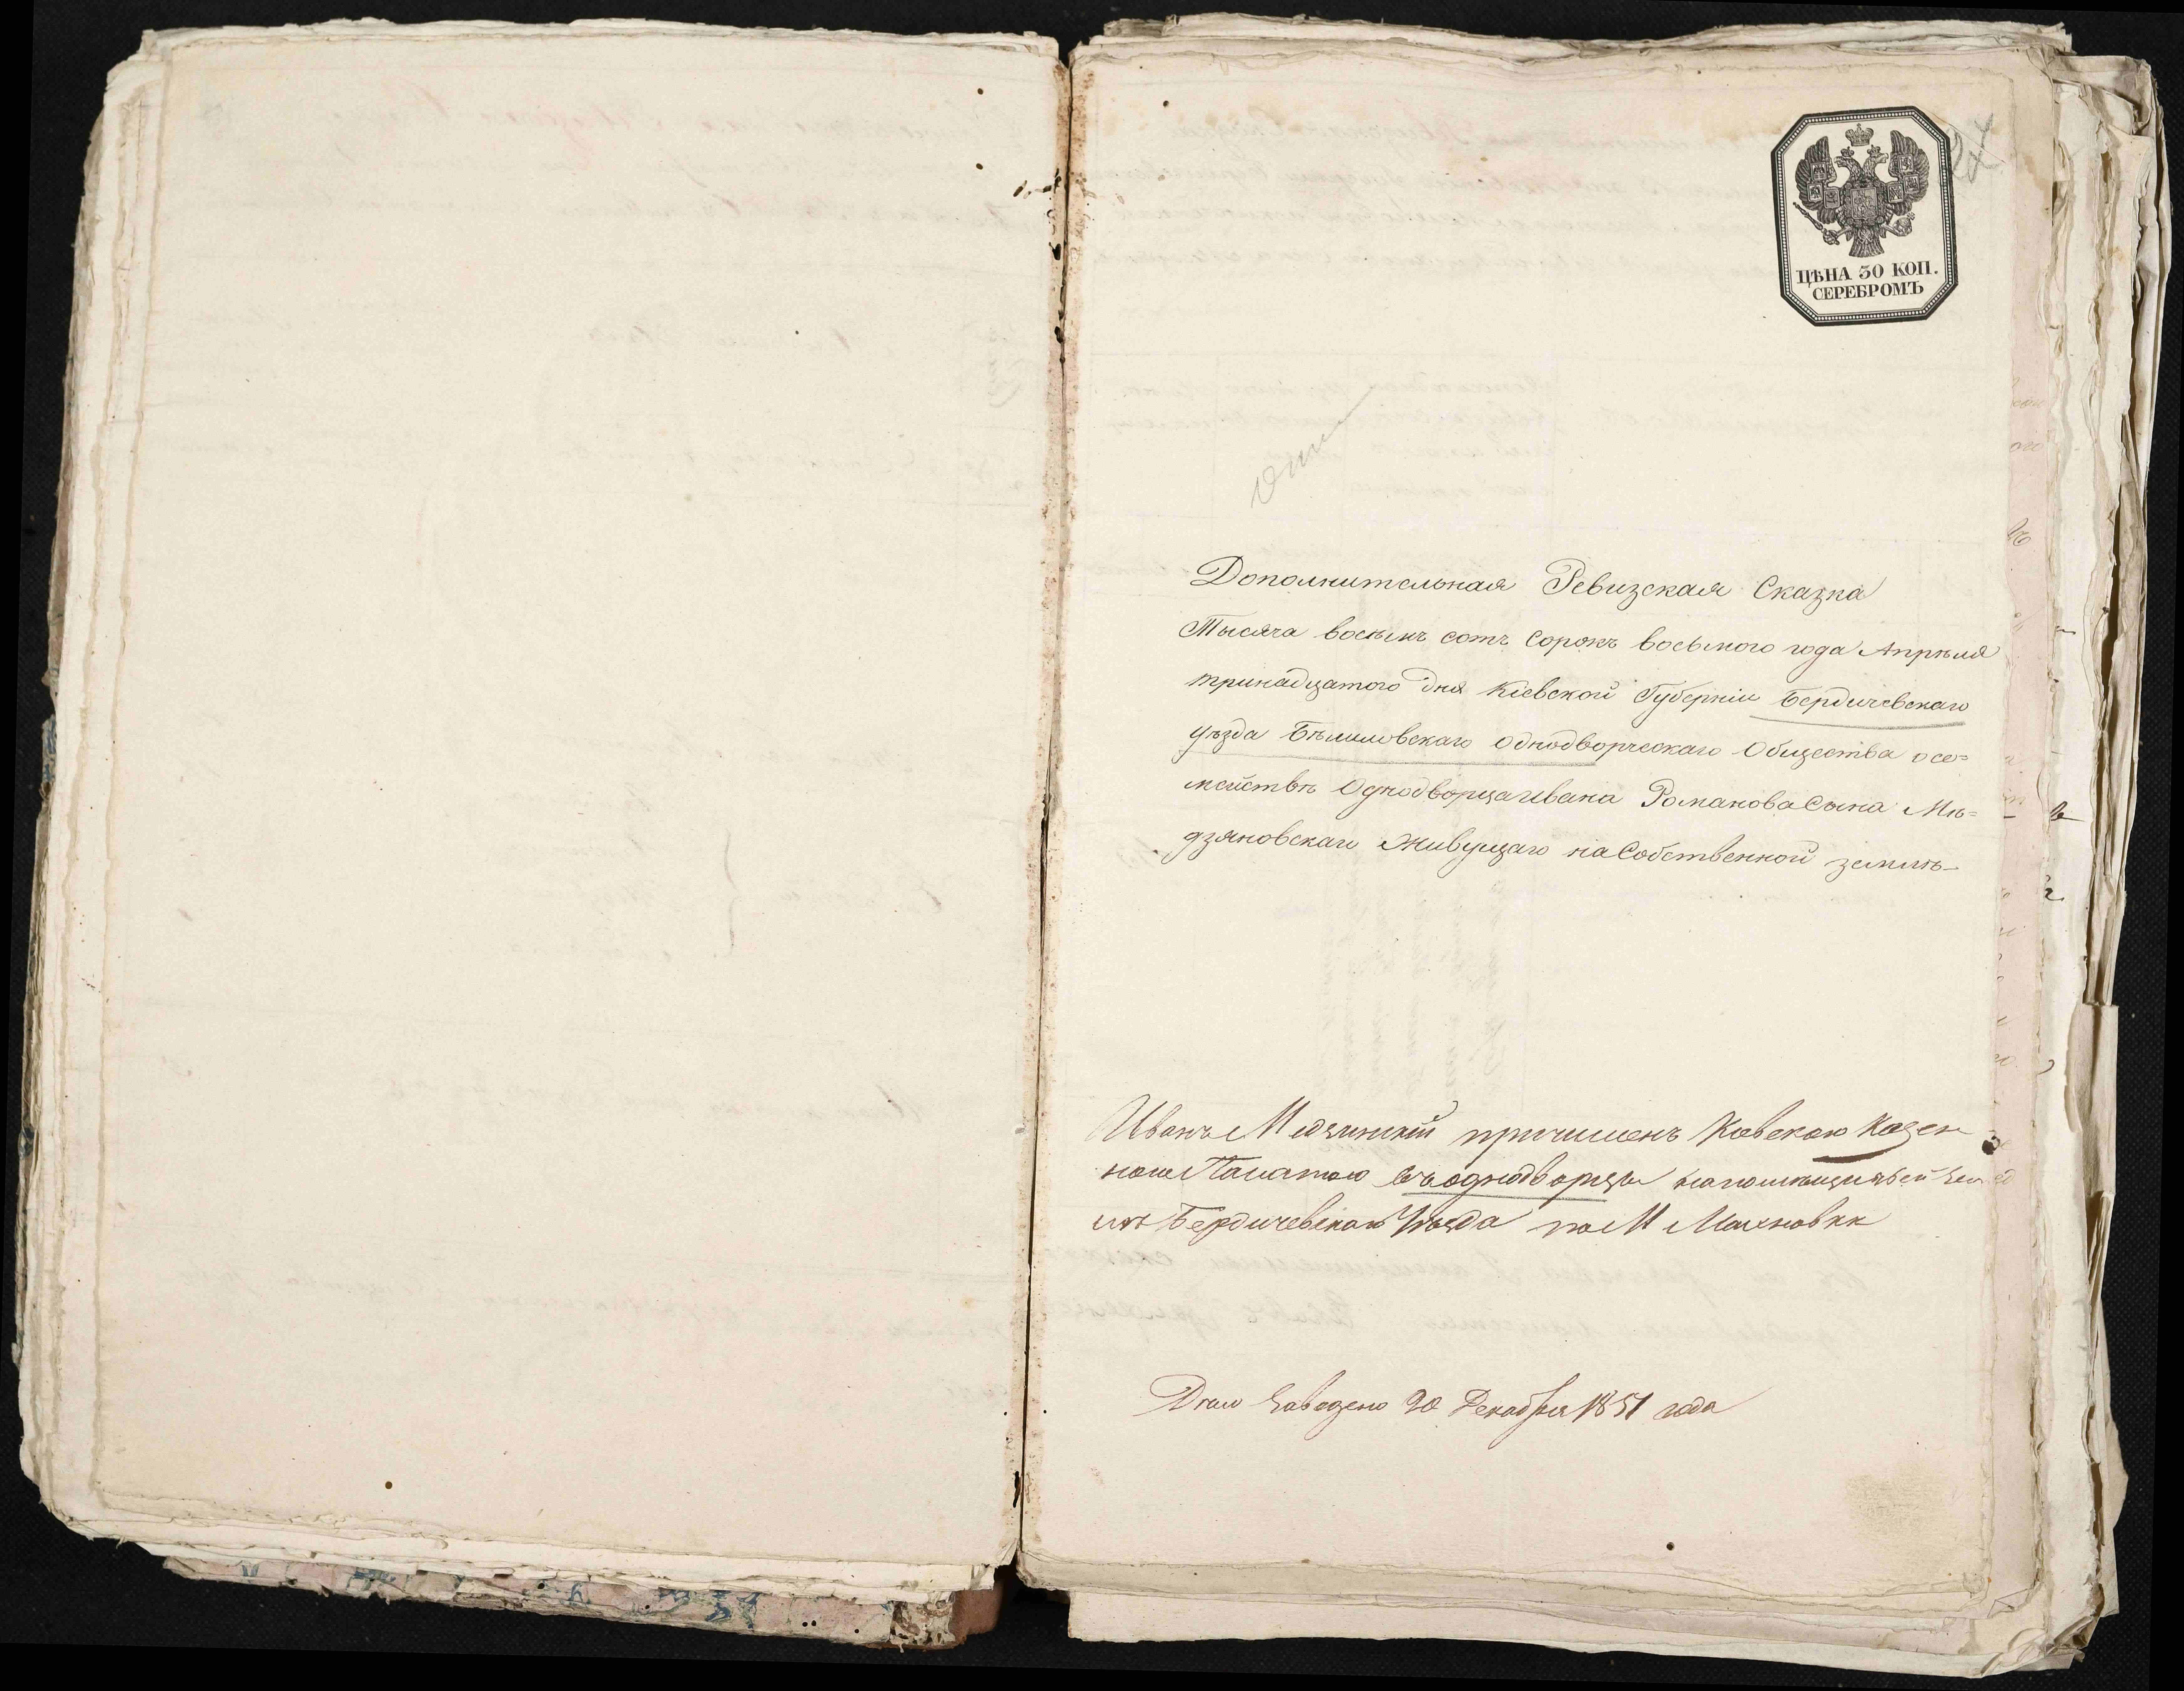 ЦѢНА 30 КОП.
СЕРЕБРОМЪ
Дополнительная Ревизская Сказка
Тысяча восемь сотъ сорокъ восьмого года Апрѣля
тринадцатого дня Кіевской Губерніи Бердичевскаго
уѣзда Бѣлиловскаго однодворческаго Общества осе=
мействѣ Однодворца Ивана Романова Сына Мѣ=
дзяновскаго Живущаго на Собственной землѣ
Иванъ причисленъ Кіевскою Казен
ною Палатою въ однодворцы на помѣщичьей зем
лѣ Бердичевскаго Уѣзда по М Махновкѣ
Дѣло Заведено 20 Декабря 1851 года